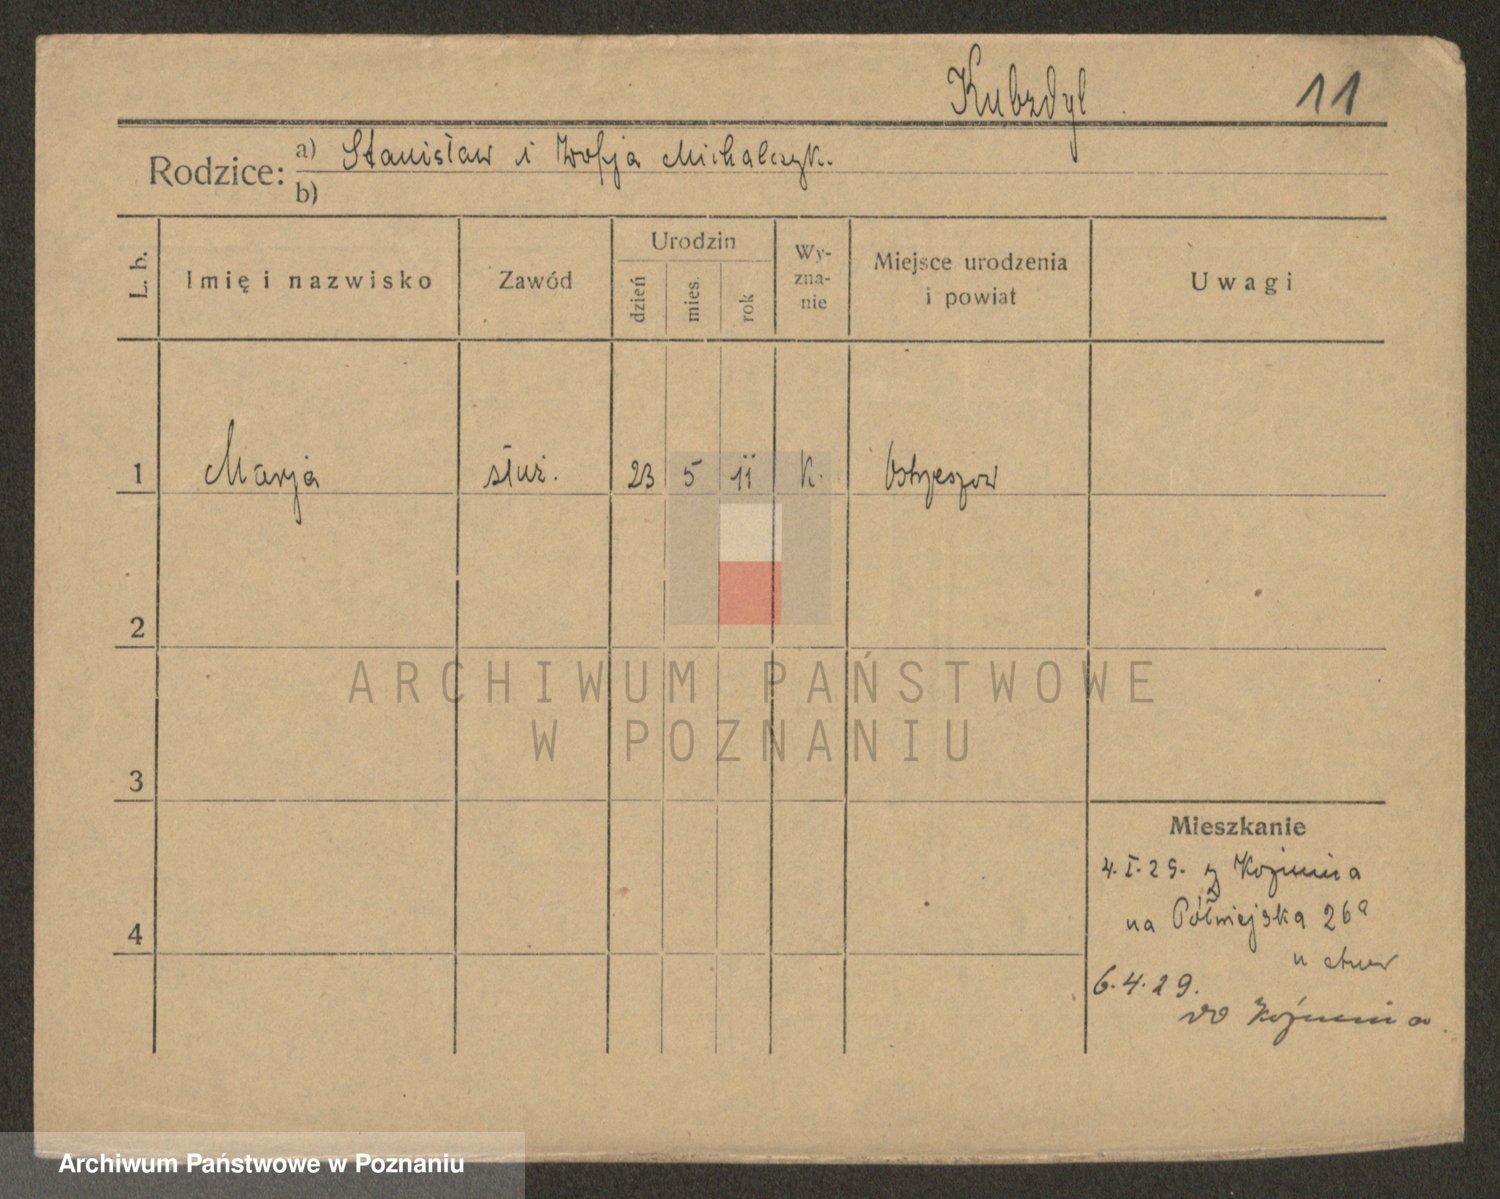 Kubzdyl 11
Rodzice: a) Stanisław i Zofja Michalczyk.
b)
L. b. Imię i nazwisko Zawód Urodzin dzień mies. rok Wy-zna-nie Miejsce urodzenia i powiat Uwagi
1 Marja służ. 23 5 11 K. Ostrzeszow
2
ARCHIWUM PAŃSTWOWE
W POZNANIU
3
4
Mieszkanie
4.I.29. z Kozmina
na Półwiejska 26a
u
6.4.29.
do Koźmina.
Archiwum Państwowe w Poznaniu